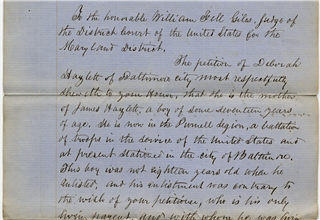 To the honorable William Fell Giles, Judge of
the District Court of the United States for the
Maryland District.
The petition of Deborah
Haylett of Baltimore city most respectfully
sheweth to your Honor, that she is the mother
of James Haylett, a boy of some seventeen years
of age. He is now in the Purnell Legion, a battalion
of troops in the service of the United States and
at present stationed in the city of Baltimore.
This boy was not eighteen years old when he
enlisted, and his enlistment was contrary to
the wish of your petitioner, who is his only
living parent, and with whom he was living